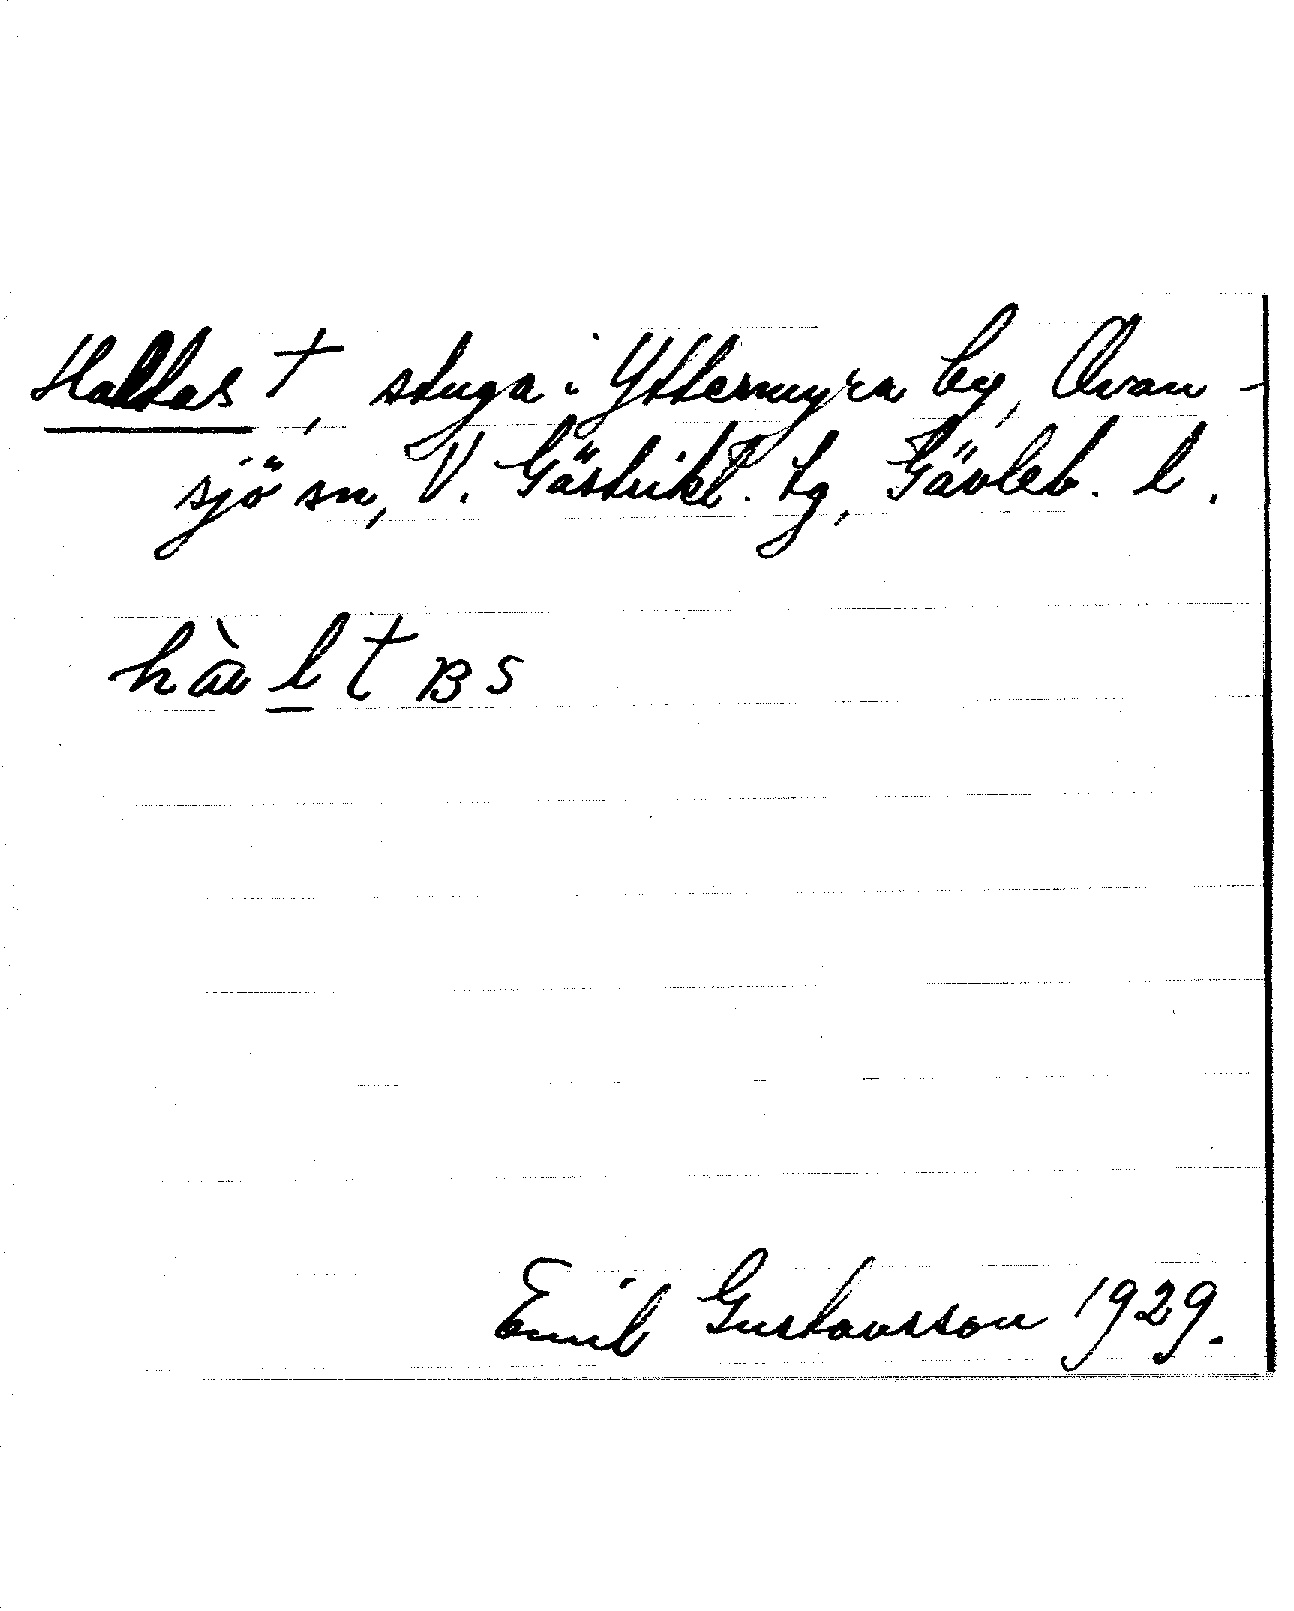 Haltas †, stuga i Yttermyra by, Ovan-
sjö sn, V. Gästrikl. tg, Gävleb. l.
hàltBs
Emil Gustavsson 1929.